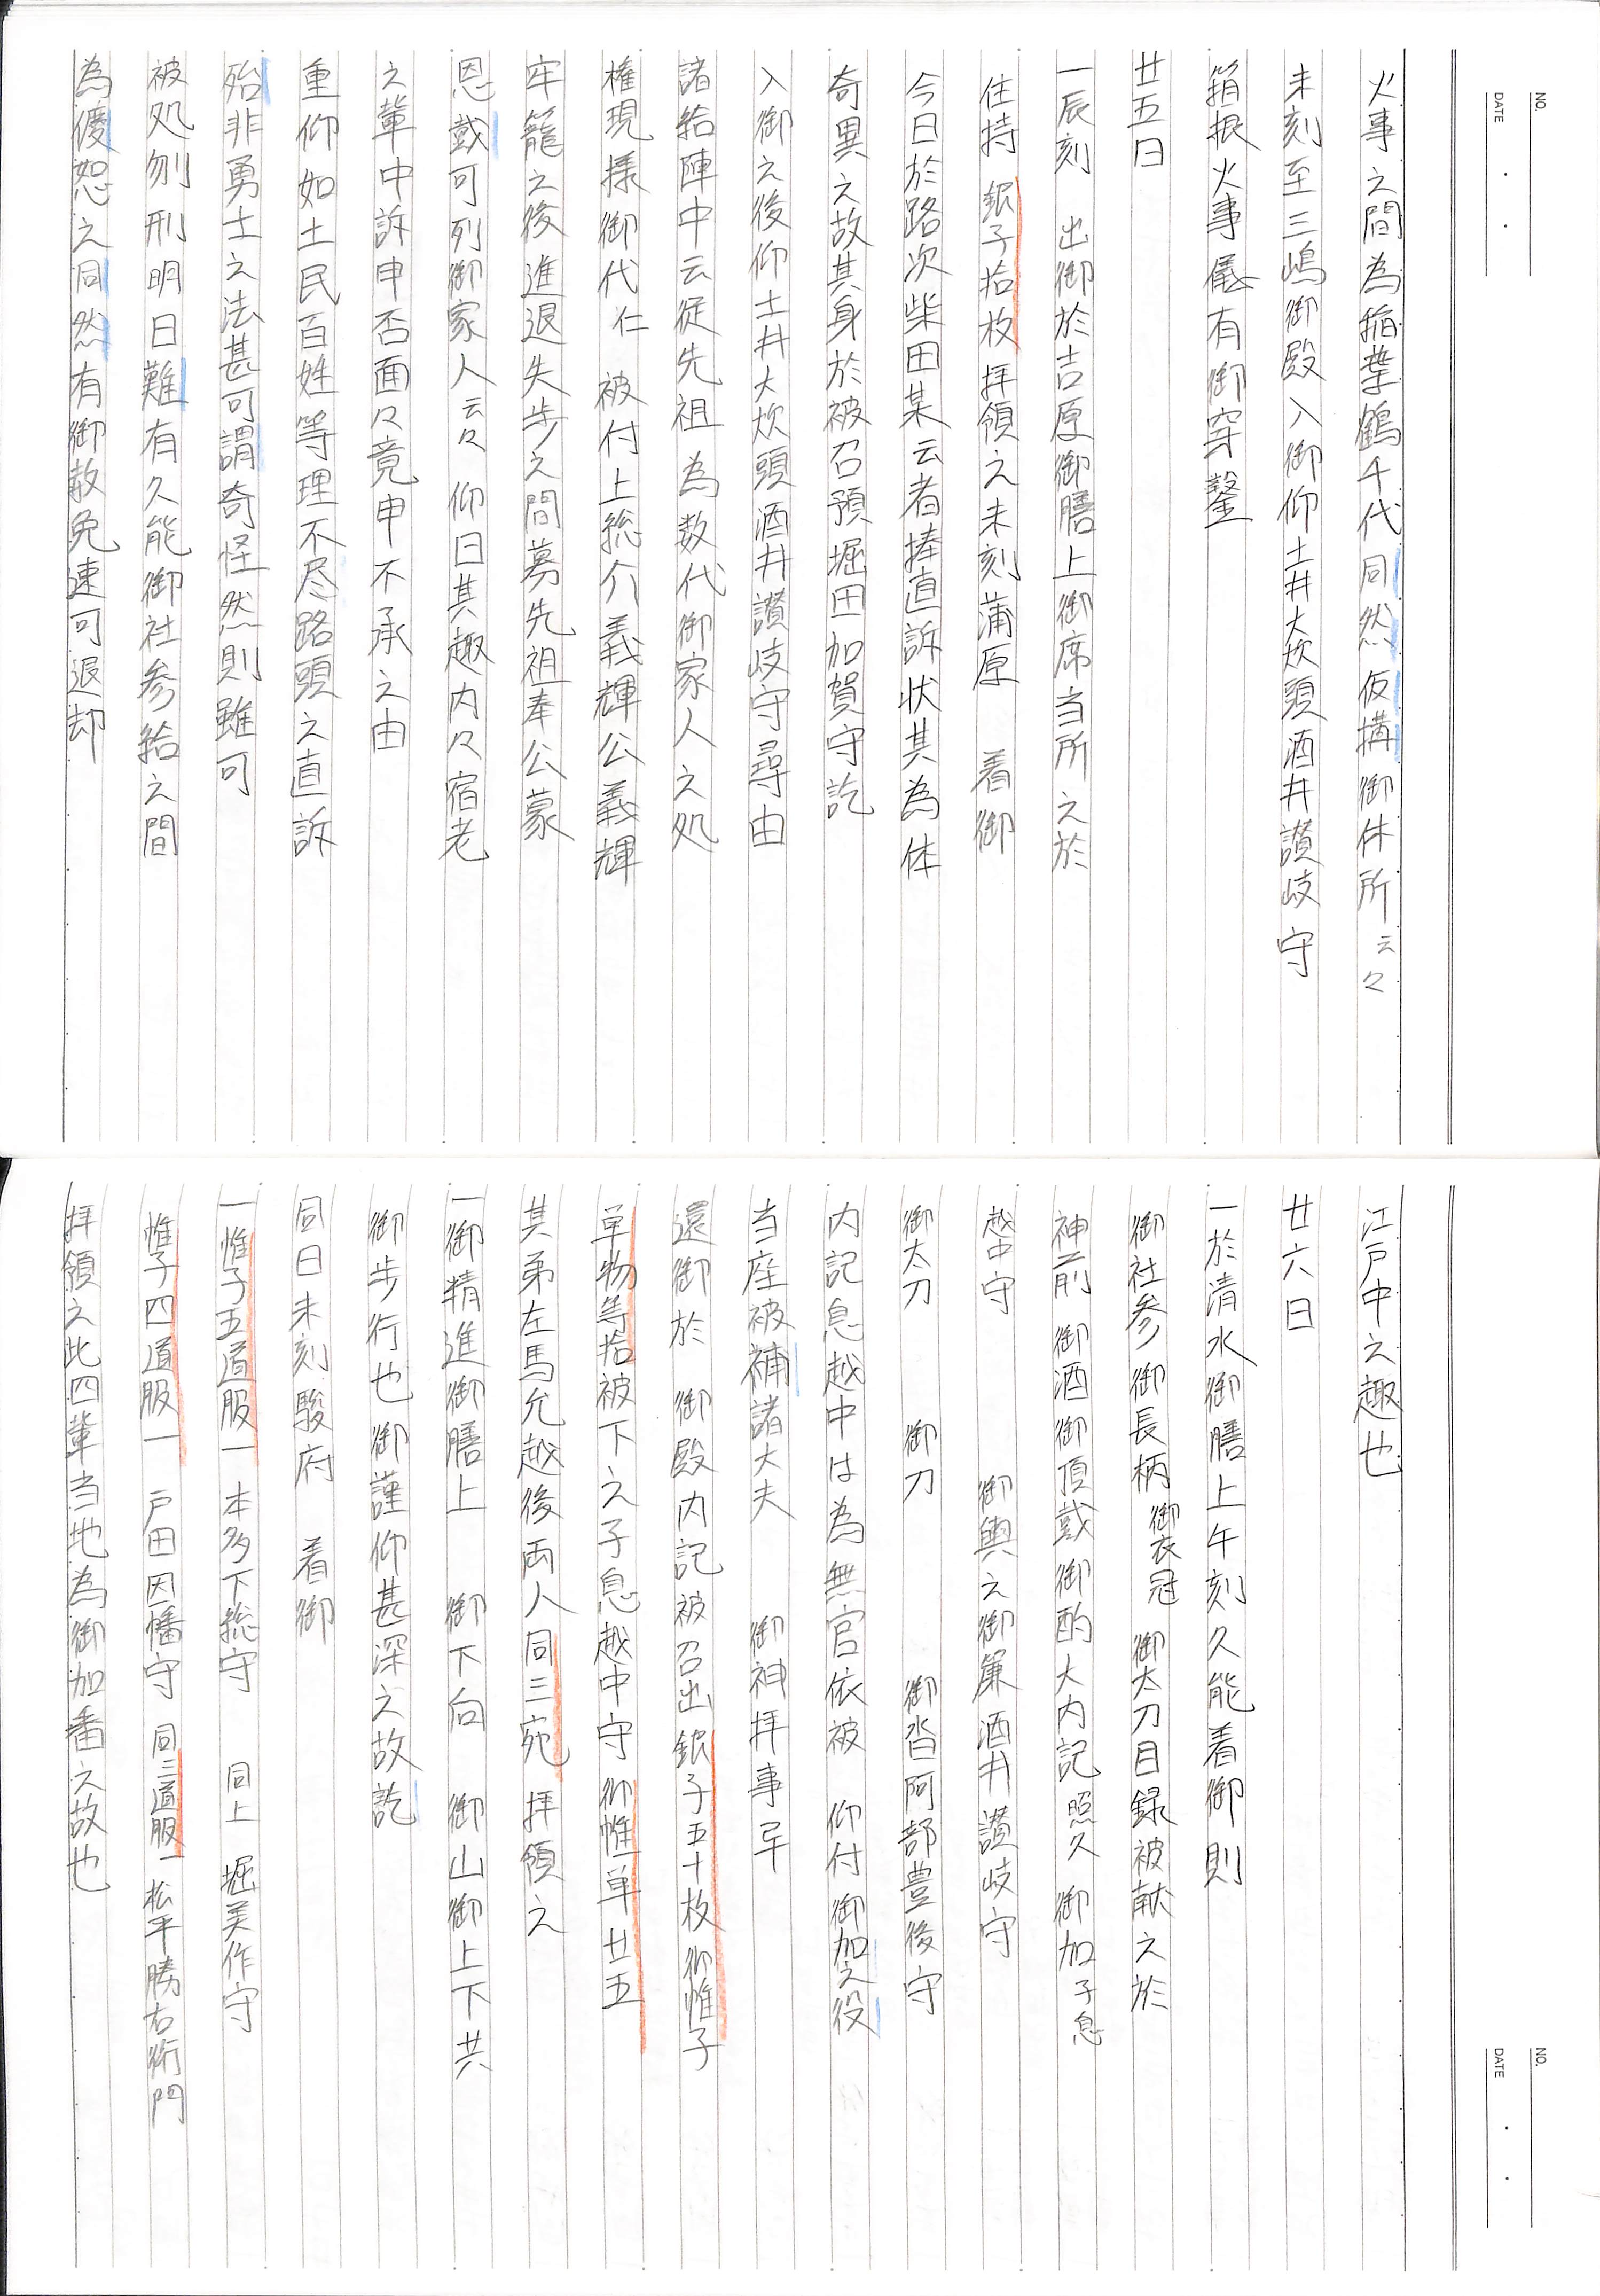 NO.
DATE
火事之間為稲葉鶴千代同然仮搆御休所云々
未刻至三嶋御殿入御仰土井大炊頭酒井讃岐守
箱根火事儀有御穿鑿
廿五日
一辰刻 出御於吉原御膳上御席当所之於
住持 銀子拾枚拝領之未刻蒲原 着御
今日於路次柴田某云者捧直訴状其為体
奇異之故其身於被召預堀田加賀守訖
入御之後仰土井大炊頭酒井讃岐守尋由
諸給陣中云従先祖為数代御家人之処
権現様御代仁 被付上総介義輝公義輝
牢籠之後進退失歩之間募先祖奉公蒙
恩戴可列御家人云々 仰曰其趣内々宿老
之輩中訴申否面々竟申不承之由
重仰如土民百姓等理不尽路頭之直訴
殆非勇士之法甚可謂奇怪然則雖可
被処刎刑明日難有久能御社参給之間
為優恕之同然有御赦免速可退却
NO.
DATE
江戸中之趣也
廿六日
一於清水御膳上午刻久能着御則
御社参御長柄 御衣冠 御太刀目録被献之於
神前 御酒御頂戴御酌大内記照久 御加子息
越中守 御輿之御簾酒井讃岐守
御太刀 御刀 御沓阿部豊後守
内記息越中は為無官依被 仰付御加之役
当座被補諸大夫 御神拝事畢
還御於 御殿内記被召出銀子五十枚御帷子
単物等拾被下之子息越中守御帷単廿五
其弟左馬允越後両人同三宛拝領之
一御精進御膳上 御下向 御山御上下共
御歩行也御謹仰甚深之故訖
同日未刻駿府 着御
一帷子五道服一 本多下総守 同上 堀美作守
帷子四道服一 戸田因幡守 同三道服一 松平勝右衛門
拝領之此四輩当地為御加番之故也